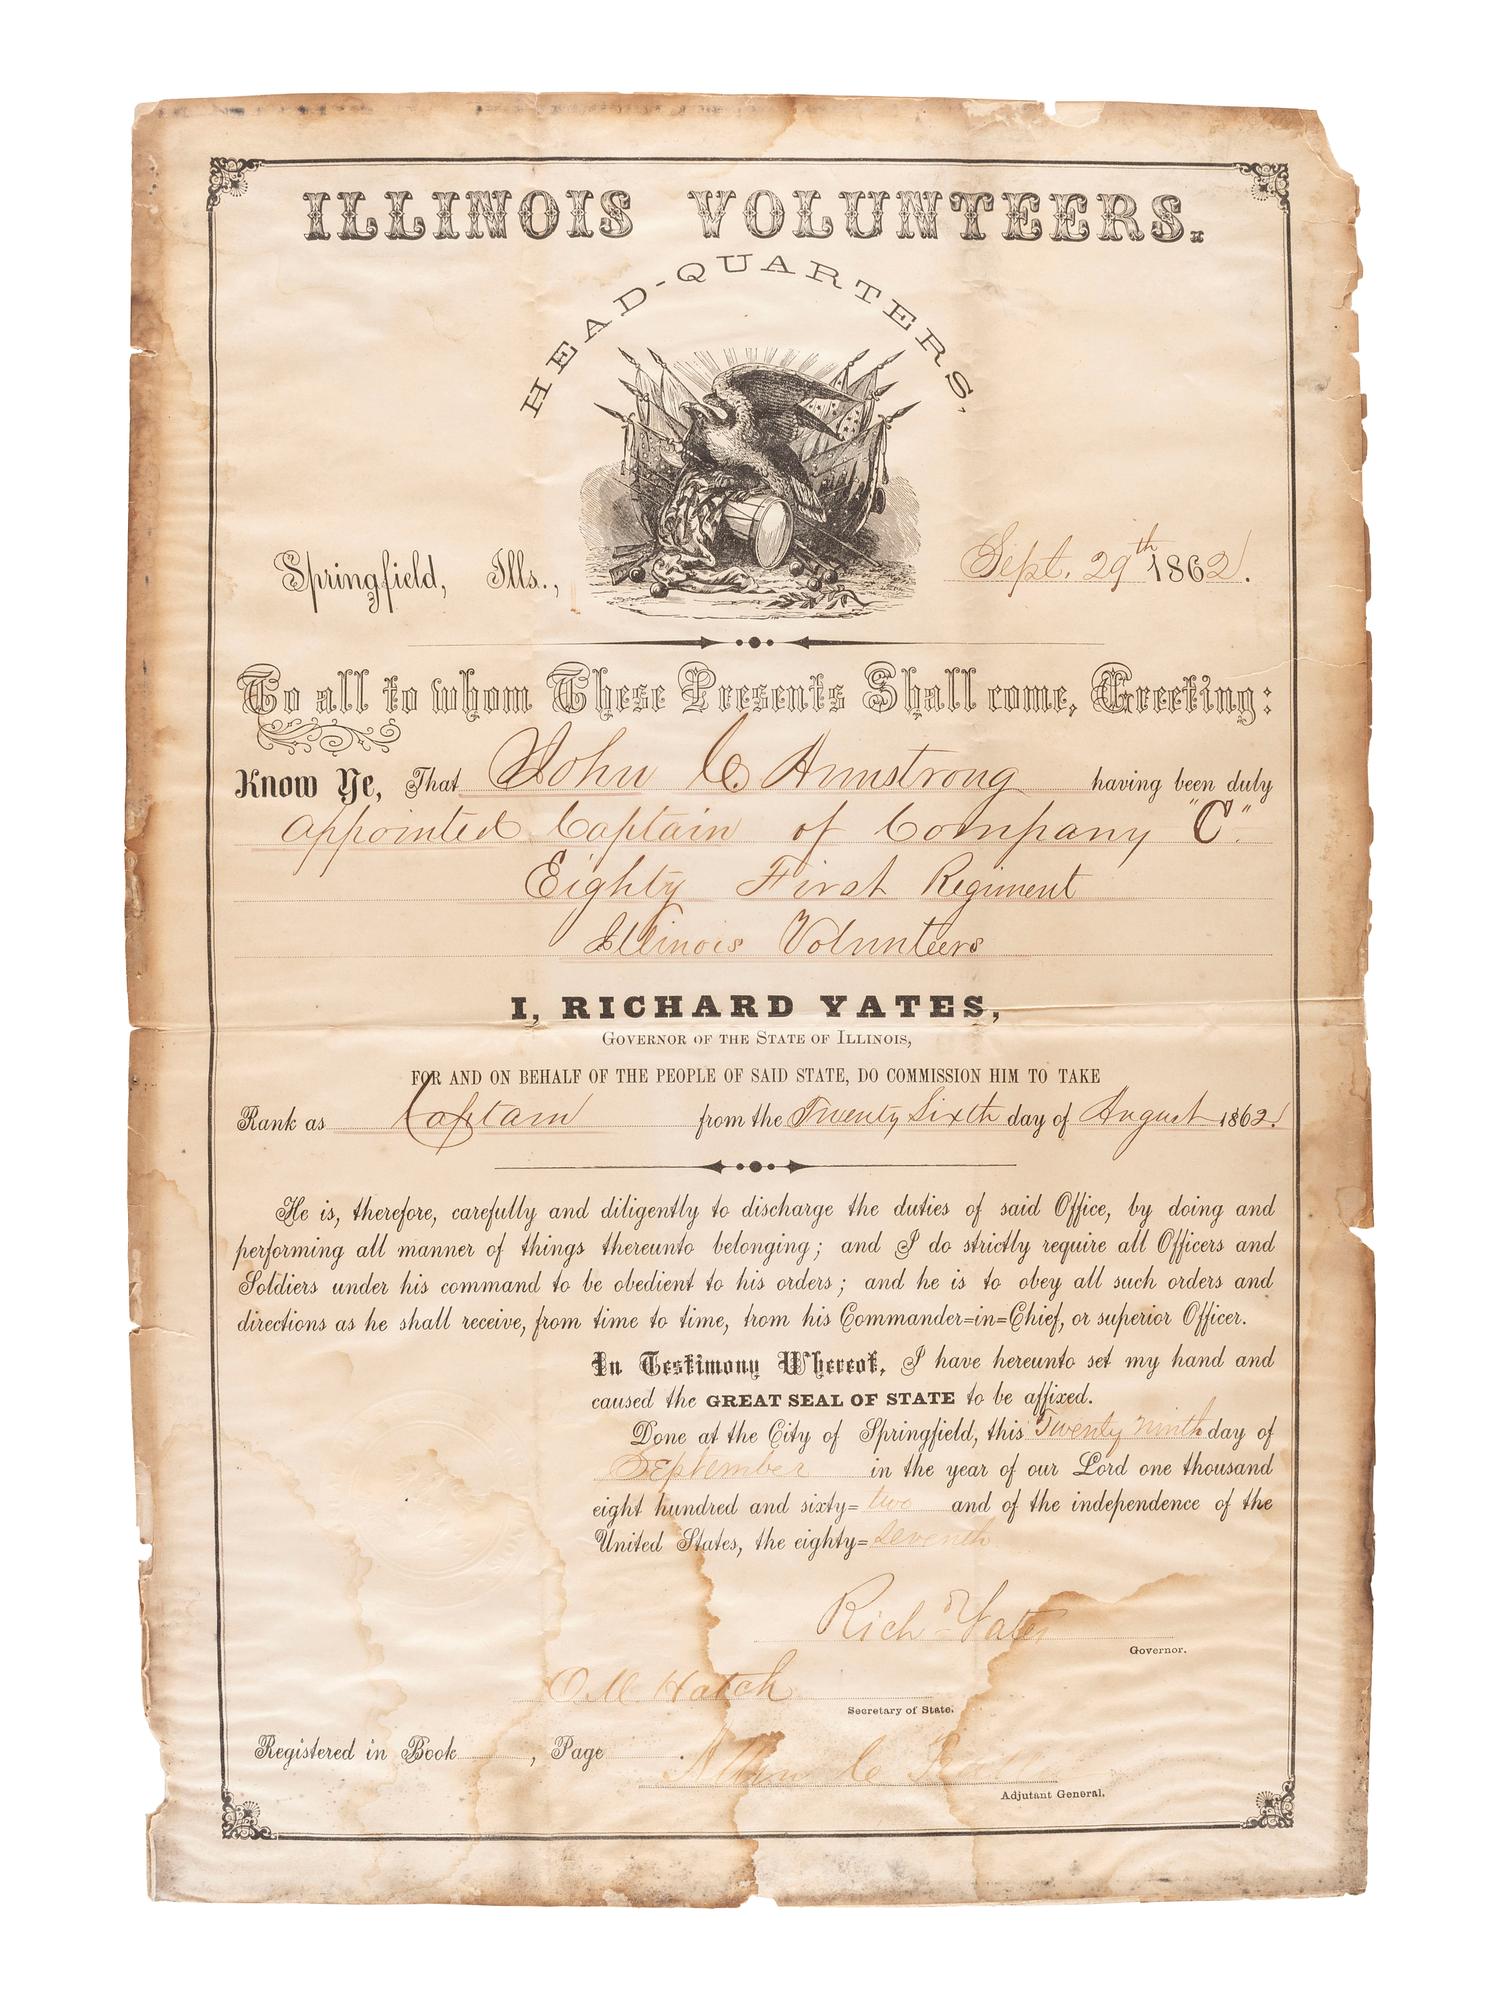 ILLINOIS VOLUNTEERS.
HEAD-QUARTERS,
Springfield, Ills., Sept. 29th 1862.
To all to whom These Presents Shall come, Greeting:
Know Ye, That John C. Armstrong having been duly
appointed Captain of Company "C".
Eighty First Regiment
Illinois Volunteers
I, RICHARD YATES,
GOVERNOR OF THE STATE OF ILLINOIS,
FOR AND ON BEHALF OF THE PEOPLE OF SAID STATE, DO COMMISSION HIM TO TAKE
Rank as Captain from the Twenty Sixth day of August 1862.
He is, therefore, carefully and diligently to discharge the duties of said Office, by doing and
performing all manner of things thereunto belonging; and I do strictly require all Officers and
Soldiers under his command to be obedient to his orders; and he is to obey all such orders and
directions as he shall receive, from time to time, from his Commander=in=Chief, or superior Officer.
In Testimony Whereof, I have hereunto set my hand and
caused the GREAT SEAL OF STATE to be affixed.
Done at the City of Springfield, this Twenty ninth day of
September in the year of our Lord one thousand
eight hundred and sixty=two and of the independence of the
United States, the eighty=seventh
Richd Yates
Governor.
O.M. Hatch
Secretary of State.
Registered in Book , Page .
Allen C
Adjutant General.